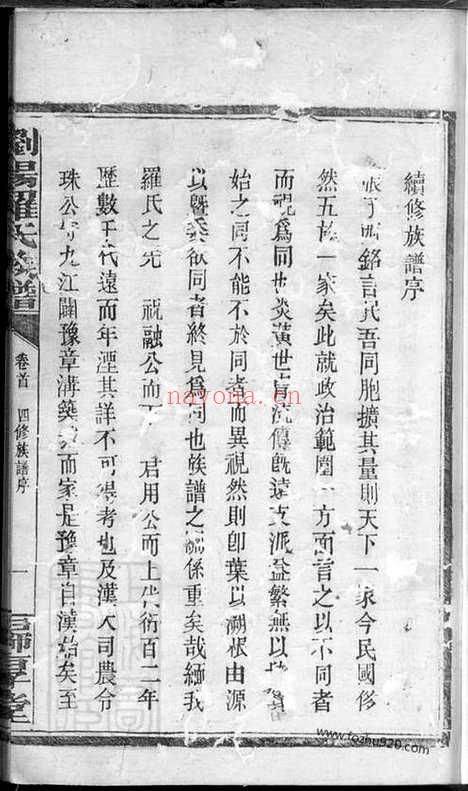 續修族譜序
張子西銘言民吾同胞擴其量則天下一家今民國修
然五族一家矣此就政治範圍一方面言之以不同者
而視爲同也炎黃世胄流傳旣遠支派益繁無以
始之同不能不於同者而異視然則卽葉以溯根由源
以曁委欲同者終見爲同也族譜之關係重矣哉緬我
羅氏之先 祝融公而下 君用公而上代衍百二年
歷數千代遠而年湮其詳不可得考也及漢大司農令
珠公守九江闢豫章溝築城而家是豫章自漢始矣至
瀏陽羅氏族譜
卷首 四修族譜序 一
師厚堂
nayona.cn
www.fozhu920.com